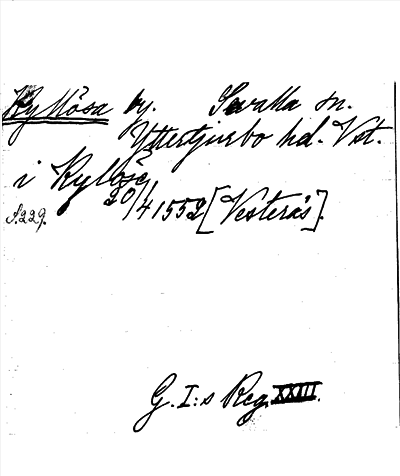 Kyllösa by. Sevalla sn.
Yttertjurbo hd. Vst.
i Kyllöse
20/4 1552 [Vesterås].
S. 229.
G. I:s Reg. XXIII.